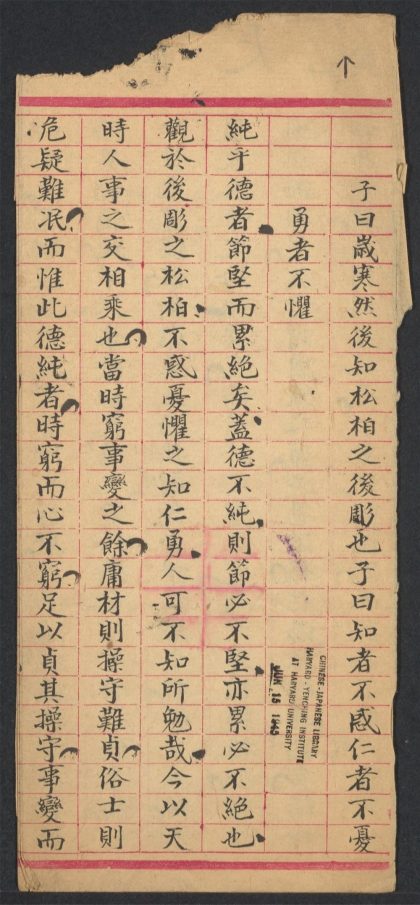 子曰歲寒然後知松柏之後彫也子曰知者不惑仁者不憂
勇者不懼
純乎德者節堅而累絕矣蓋德不純則節必不堅亦累必不絕也
觀於後彫之松柏不惑憂懼之知仁勇人可不知所勉哉今以天
時人事之交相乘也當時窮事變之餘庸材則操守難貞俗士則
危疑難泯而惟此德純者時窮而心不窮足以貞其操守事變而
CHINESE-JAPANESE LIBRARY
HARVARD-YENCHING INSTITUTE
AT HARVARD UNIVERSITY
JUN 15